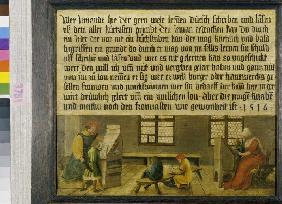 Wer jemandt hie der gern welt lernen dütsch schriben und läsen
uß dem aller kürtzisten grundt den jeman erdencken kan do durch
ein jeder der vor nit ein büchstaben kan der mag kürtzlich und bald
begriffen ein grundt do durch er mag von jm selbs lernen sin schuld
uff schribē und läsen und wer es nit gelernen kan so ungeschickt
were den will ich um nüt und vergeben gelert haben und gantz nüt
von jm zü lon nemen er sig wer er well burger oder hantwercks ge
sellen frouwen und junckfrouwen wer sin bedarff der kumm har jn der
wirt drüwlich gelert um ein zimlichen lon · aber die junge knabē
und meitlin noch den fronuasten wie gewonheit ist · 1516 ·